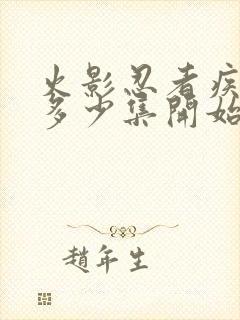 火影忍者疾
多少集開始
趙年生